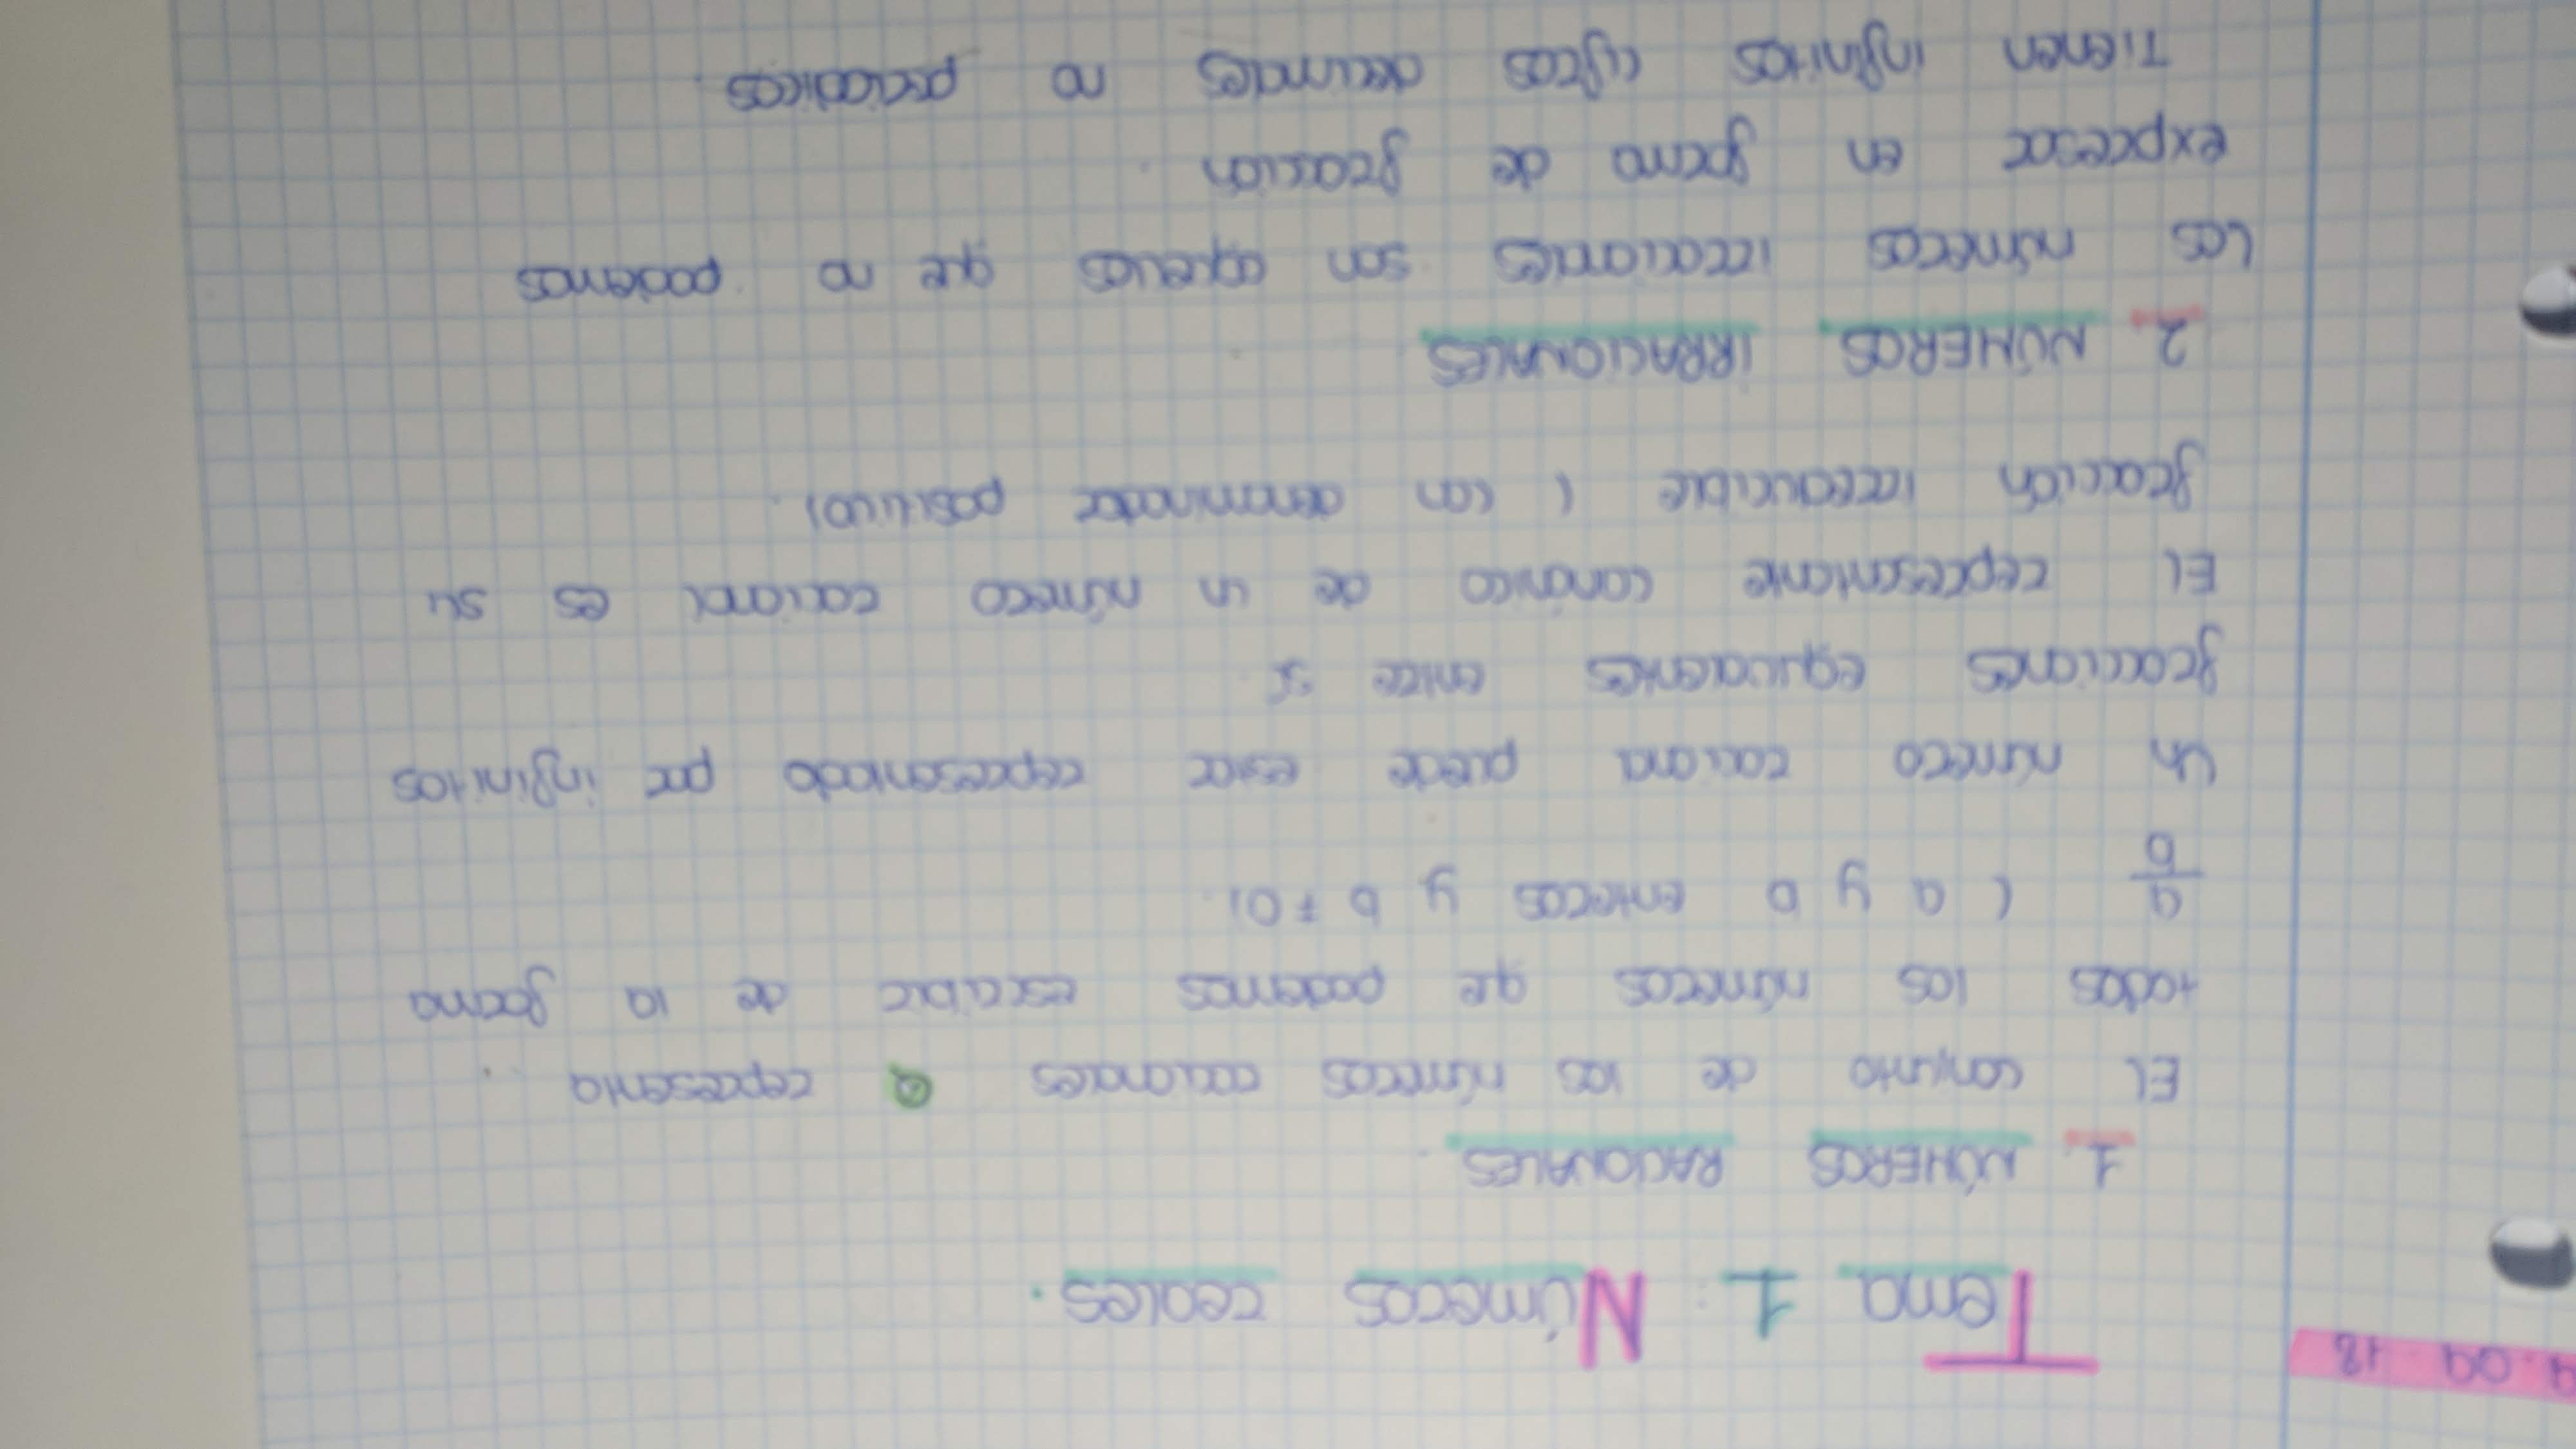 9.09.18
Tema 1: Números reales.
1. NÚMEROS RACIONALES.
El conjunto de los números racionales Q representa
todos los números que podemos escribir de la forma
a/b (a y b enteros y b ≠ 0).
Un número racional puede estar representado por infinitas
fracciones equivalentes entre sí.
El representante canónico de un número racional es su
fracción irreducible (con denominador positivo).
2. NÚMEROS IRRACIONALES.
Los números irracionales son aquellos que no podemos
expresar en forma de fracción.
Tienen infinitas cifras decimales no periódicas.